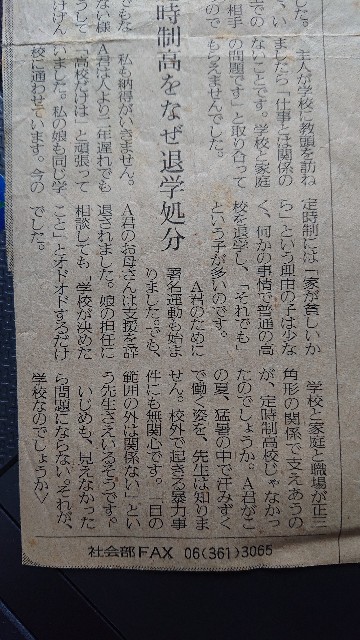 した。
での
相手
の
主人が学校に教頭を訪ね
ましたら「仕事とは関係の
ないことです。学校と家庭
の問題です」と取り合って
もらえませんでした。
時制高をなぜ退学処分
ない様
うして
私も納得がいきません。
A君は人より一年遅れでも
「高校だけは」と頑張って
いました。私の娘も同じ学
校に通わせています。今の
定時制には「家が貧しいか
ら」という理由の子は少な
く、何かの事情で普通の高
校を退学し、「それでも」
という子が多いのです。
A君のために
署名運動も始ま
りました。でも、
A君のお母さんは支援を辞
退されました。娘の担任に
相談しても「学校が決めた
こと」とオドオドするだけ
でした。
学校と家庭と職場が正三
角形の関係で支えあうの
が、定時制高校じゃなかっ
たのでしょうか。A君がこ
の夏、猛暑の中で汗みずく
で働く姿を、先生は知りま
せん。校外で起きる暴力事
件にも無関心です。「日の
範囲の外は関係ない」とい
う先生さえいるそうです。
いじめも、見えなかった
ら問題にならない。それが、
学校なのでしょうか〉
社会部FAX 06(361)3065